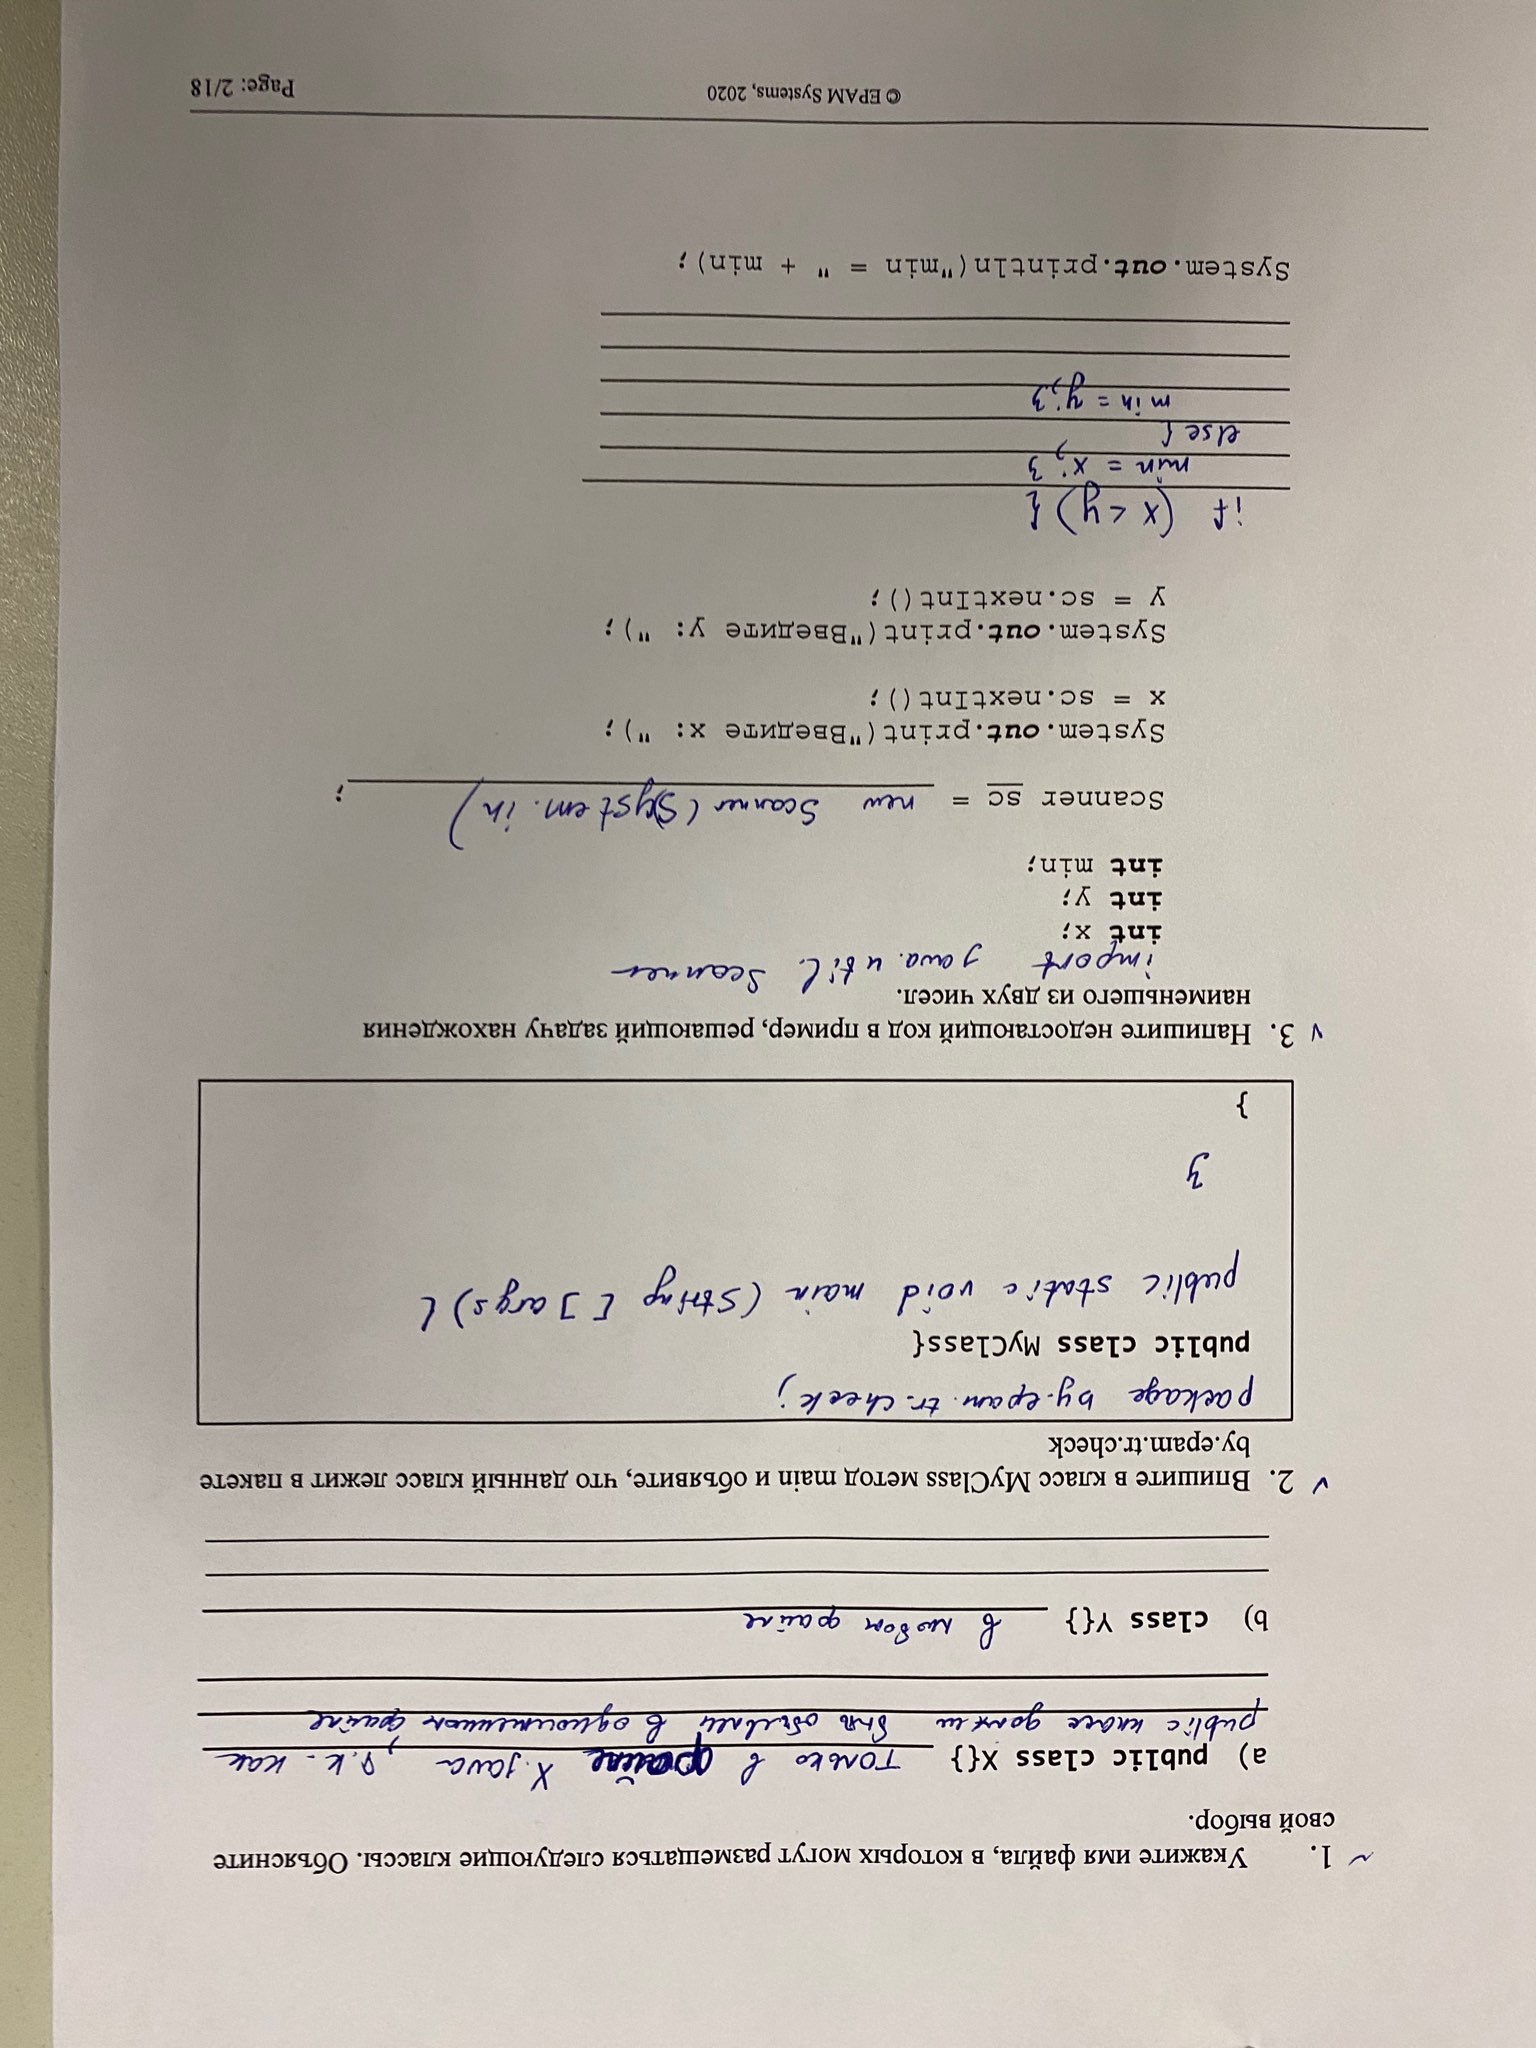 ~ 1. Укажите имя файла, в которых могут размещаться следующие классы. Объясните
свой выбор.
a) public class X{} только в файле X.java, т.к. как
public класс должен быть объявлен в одноименном файле
b) class Y{} в любом файле
v 2. Впишите в класс MyClass метод main и объявите, что данный класс лежит в пакете
by.epam.tr.check
package by.epam.tr.check;
public class MyClass{
public static void main (String [] args) {
}
}
v 3. Напишите недостающий код в пример, решающий задачу нахождения
наименьшего из двух чисел.
import java.util.Scanner
int x;
int y;
int min;
Scanner sc = new Scanner (System.in) ;
System.out.print("Введите x: ");
x = sc.nextInt();
System.out.print("Введите y: ");
y = sc.nextInt();
if (x < y) {
min = x; }
else {
min = y; }
System.out.println("min = " + min);
© EPAM Systems, 2020 Page: 2/18